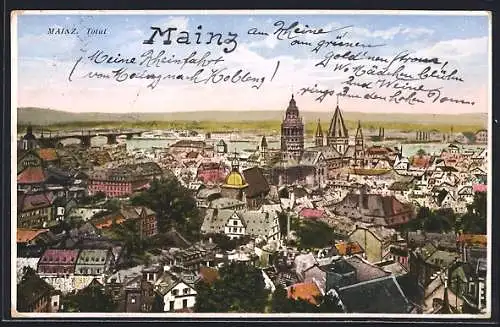 MAINZ. Total
Mainz
(Meine Rheinfahrt
von Mainz nach Koblenz!)
am Rheine
am grünen
Wo Mädchen blühn
und Weine
rings um den hohen Dom